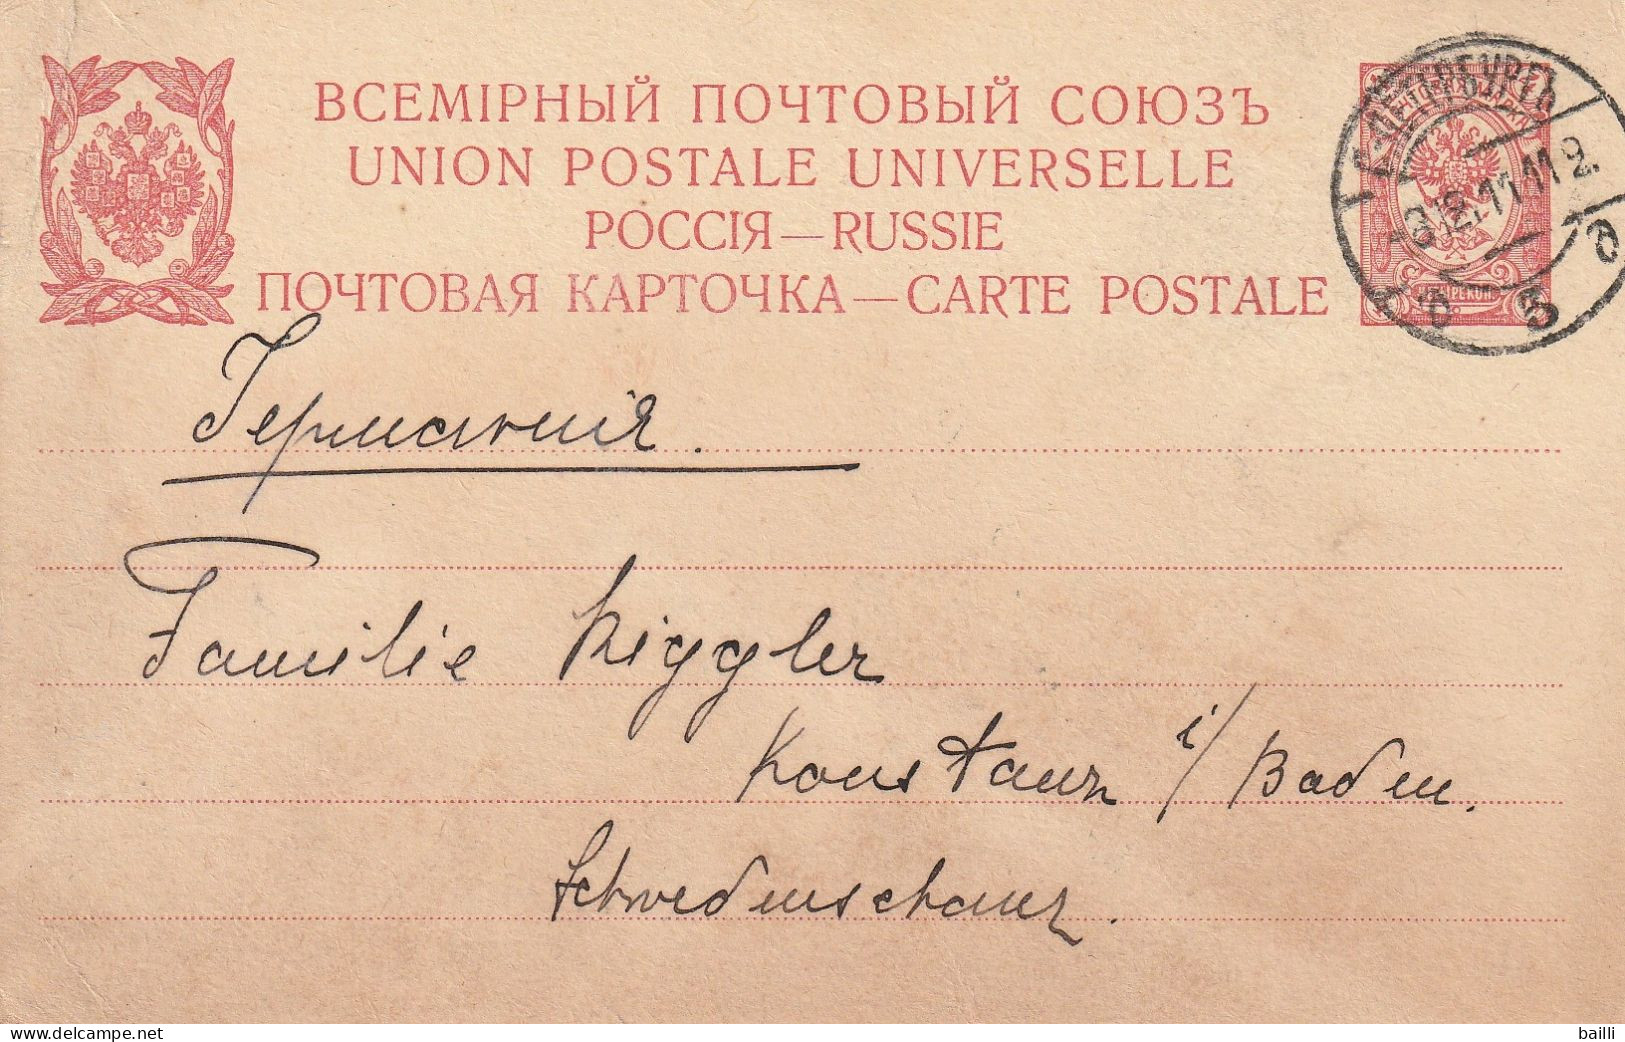 ВСЕМІРНЫЙ ПОЧТОВЫЙ СОЮЗЪ
UNION POSTALE UNIVERSELLE
РОССІЯ — RUSSIE
ПОЧТОВАЯ КАРТОЧКА — CARTE POSTALE
Германія.
Familie Riggler
Konstanz i/Baden.
Schwedenschanz.
www.delcampe.net
bailli